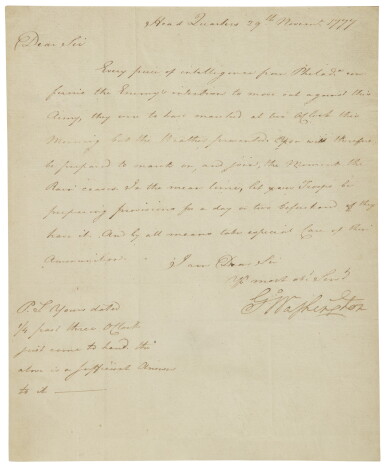 Head Quarters 29th Novemr 1777
Dear Sir
Every piece of intelligence from Philada con
firms the Enemy's intention to move out against this
Army, they were to have marched at two OClock this
Morning but the Weather prevented. You will therefore
be prepared to march on, and join, the Moment the
Rain ceases. In the mean time, let your Troops be
preparing provisions for a day or two beforehand if they
have it. And by all means take especial Care of their
Ammunition.
I am Dear Sir
Yr most obt Servt
Go Washington
P.S. Yours dated
1/4 past three OClock
just come to hand. the
above is a sufficient Answer
to it